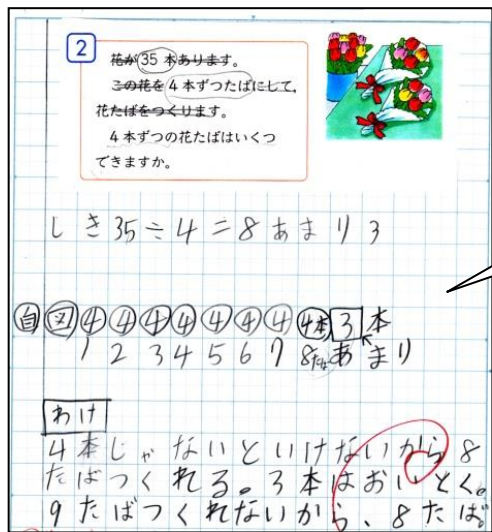 2
花が35本あります。
この花を4本ずつたばにして、
花たばをつくります。
4本ずつの花たばはいくつ
できますか。
しき35÷4=8あまり3
自 図 4 4 4 4 4 4 4 4本 3 本
1 2 3 4 5 6 7 8たば あまり
わけ
4本じゃないといけないから8
たばつくれる。3本はおいとく。
9たばつくれないから、8たば